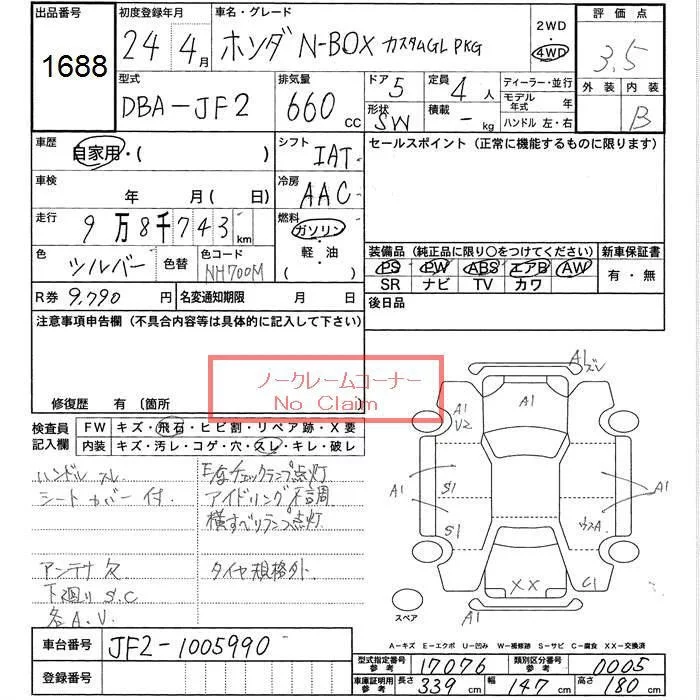 出品番号
1688
初度登録年月
24年 4月
車名・グレード
ホンダ N-BOX カスタムGL PKG
2WD
・
4WD
評価点
3.5
外装 内装
B
型式
DBA-JF2
排気量
660 cc
ドア 5
形状 SW
定員 4 人
積載 - kg
ディーラー・並行
モデル年式 年
ハンドル 左・右
車歴
自家用・( )
シフト
IAT
セールスポイント (正常に機能するものに限ります)
車検
年 月( 日)
冷房
AAC
走行
9万8千743km
燃料
ガソリン・
軽・油
( )
色
シルバー
色替
色コード
NH700M
装備品 (純正品に限り○をつけてください)
PS PW ABS エアB AW
SR ナビ TV カワ
新車保証書
有・無
R券 9,790 円
名変通知期限 月 日
後日品
注意事項申告欄 (不具合内容等は具体的に記入して下さい)
ノークレームコーナー
No Claim
修復歴 有 〔箇所 〕
検査員記入欄
FW キズ・飛石・ヒビ割・リペア跡・X要
内装 キズ・汚レ・コゲ・穴・スレ・キレ・破レ
ハンドル スレ
シートカバー付.
アンテナ欠
下廻り S.C
各A.U.
チェックランプ点灯
アイドリング不調
横すべりランプ点灯
タイヤ規格外.
A1
A1
A1
U2
A1
S1
S1
A1
A1
XX
C1
A1
スペア
A-キズ E-エクボ U-凹み W-補修跡 S-サビ C-腐食 XX-交換済
車台番号 JF2-1005990
登録番号
型式指定番号 参考 17076
類別区分番号 参考 0005
車庫証明用 参考 長さ 339 cm 幅 147 cm 高さ 180 cm